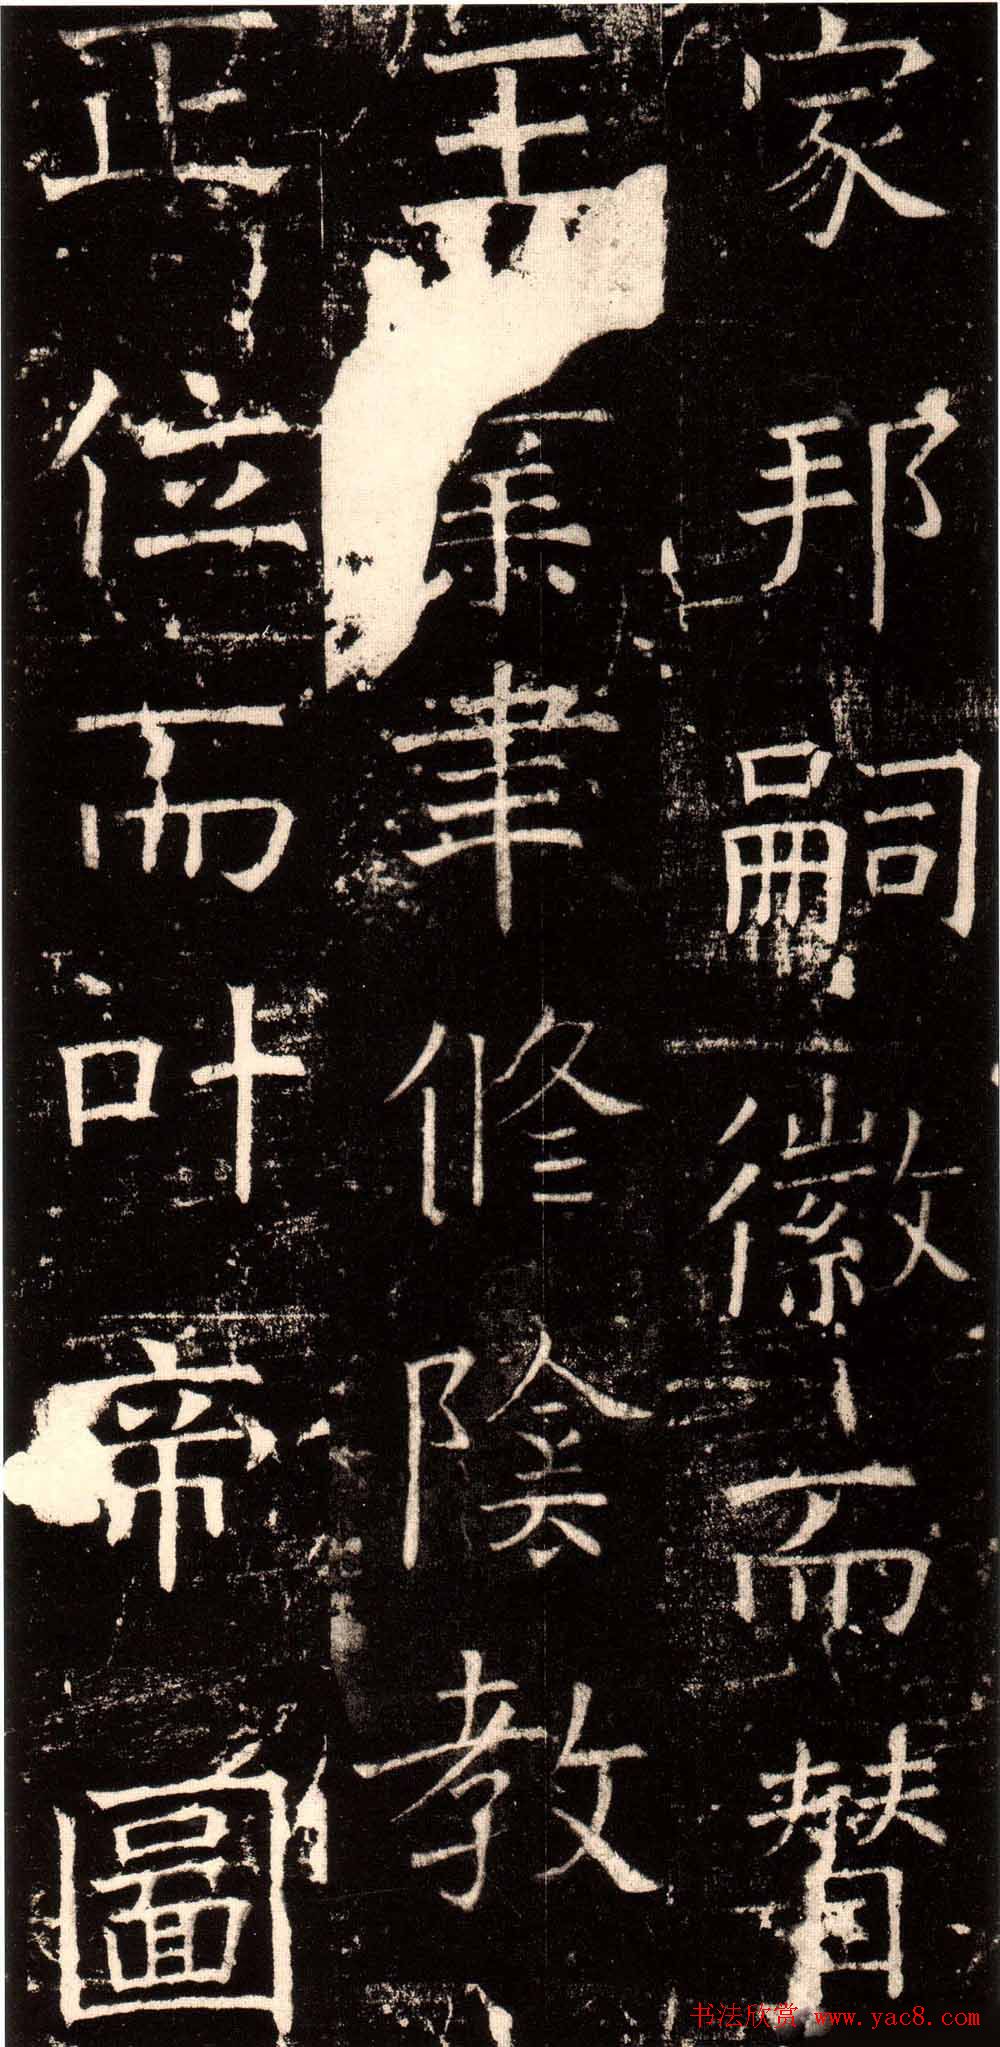 家邦嗣徽而賛
王業聿修陰教
正位而叶帝圖
书法欣赏 www.yac8.com